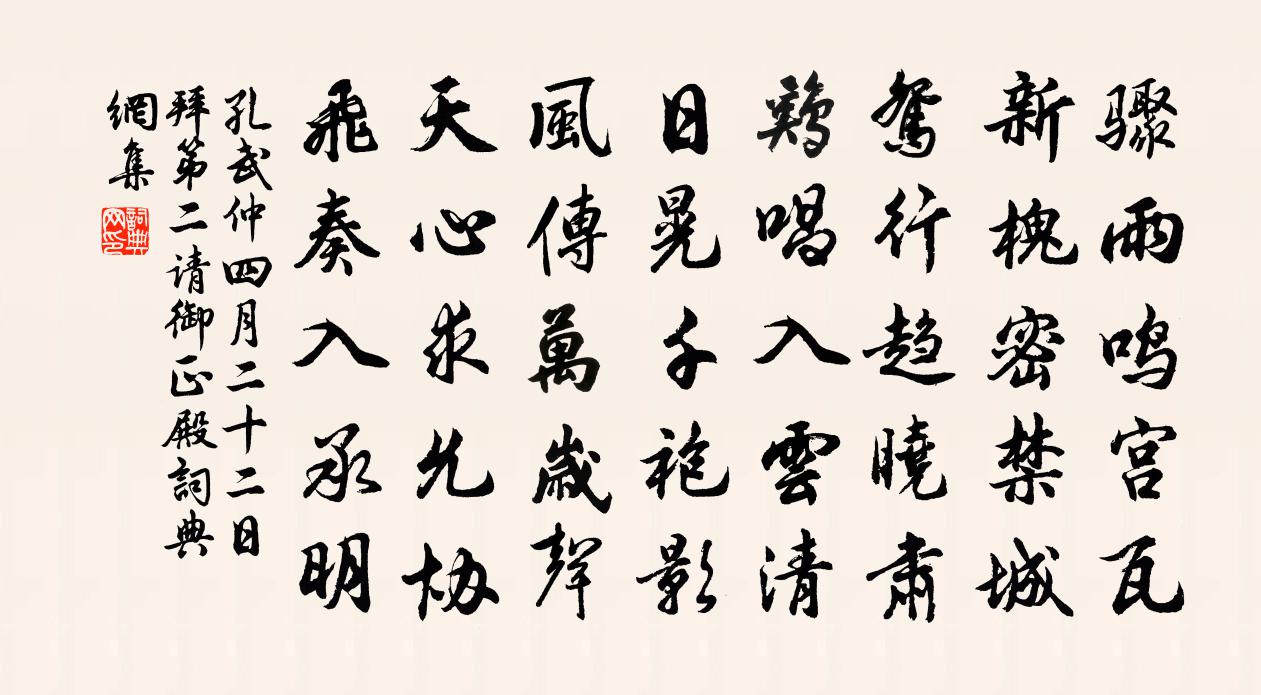 驟雨鸣宫瓦
新槐密禁城
鴛行趋曉肅
鷄唱入雲清
日晃千袍影
風傳萬歲聲
天心求允协
飛奏入承明
孔武仲四月二十二日
拜第二请御正殿詞典
網集
詞典网印